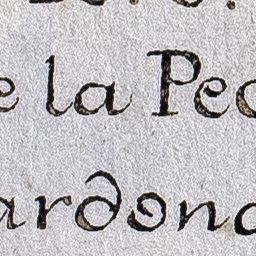 e la Pec
ardona